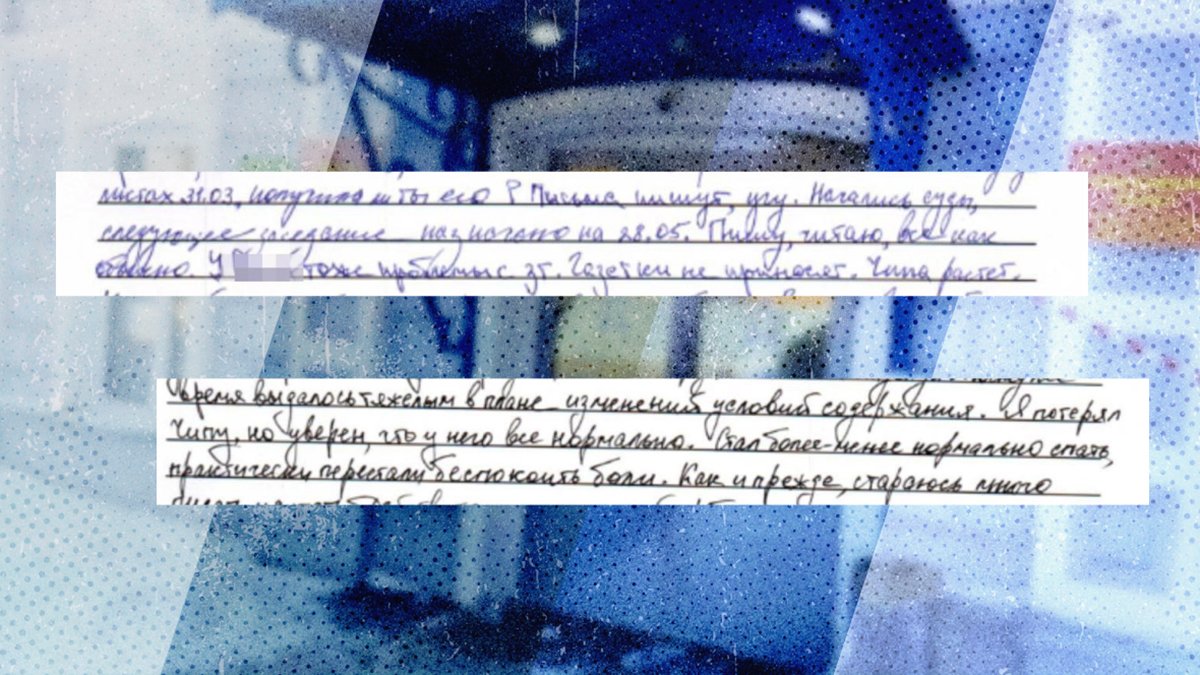 листах 31.03, получила ли ты его? Письма пишут, угу. Начались суды,
следующее заседание назначено на 28.05. Пишу, читаю, все как
обычно. У тоже проблемы с зт. Газетки не приносят. Чипа растет.
время выдалось тяжелым в плане изменений условий содержания. Я потерял
Чипу, но уверен, что у него все нормально. Стал более-менее нормально спать,
практически перестали беспокоить боли. Как и прежде, стараюсь много